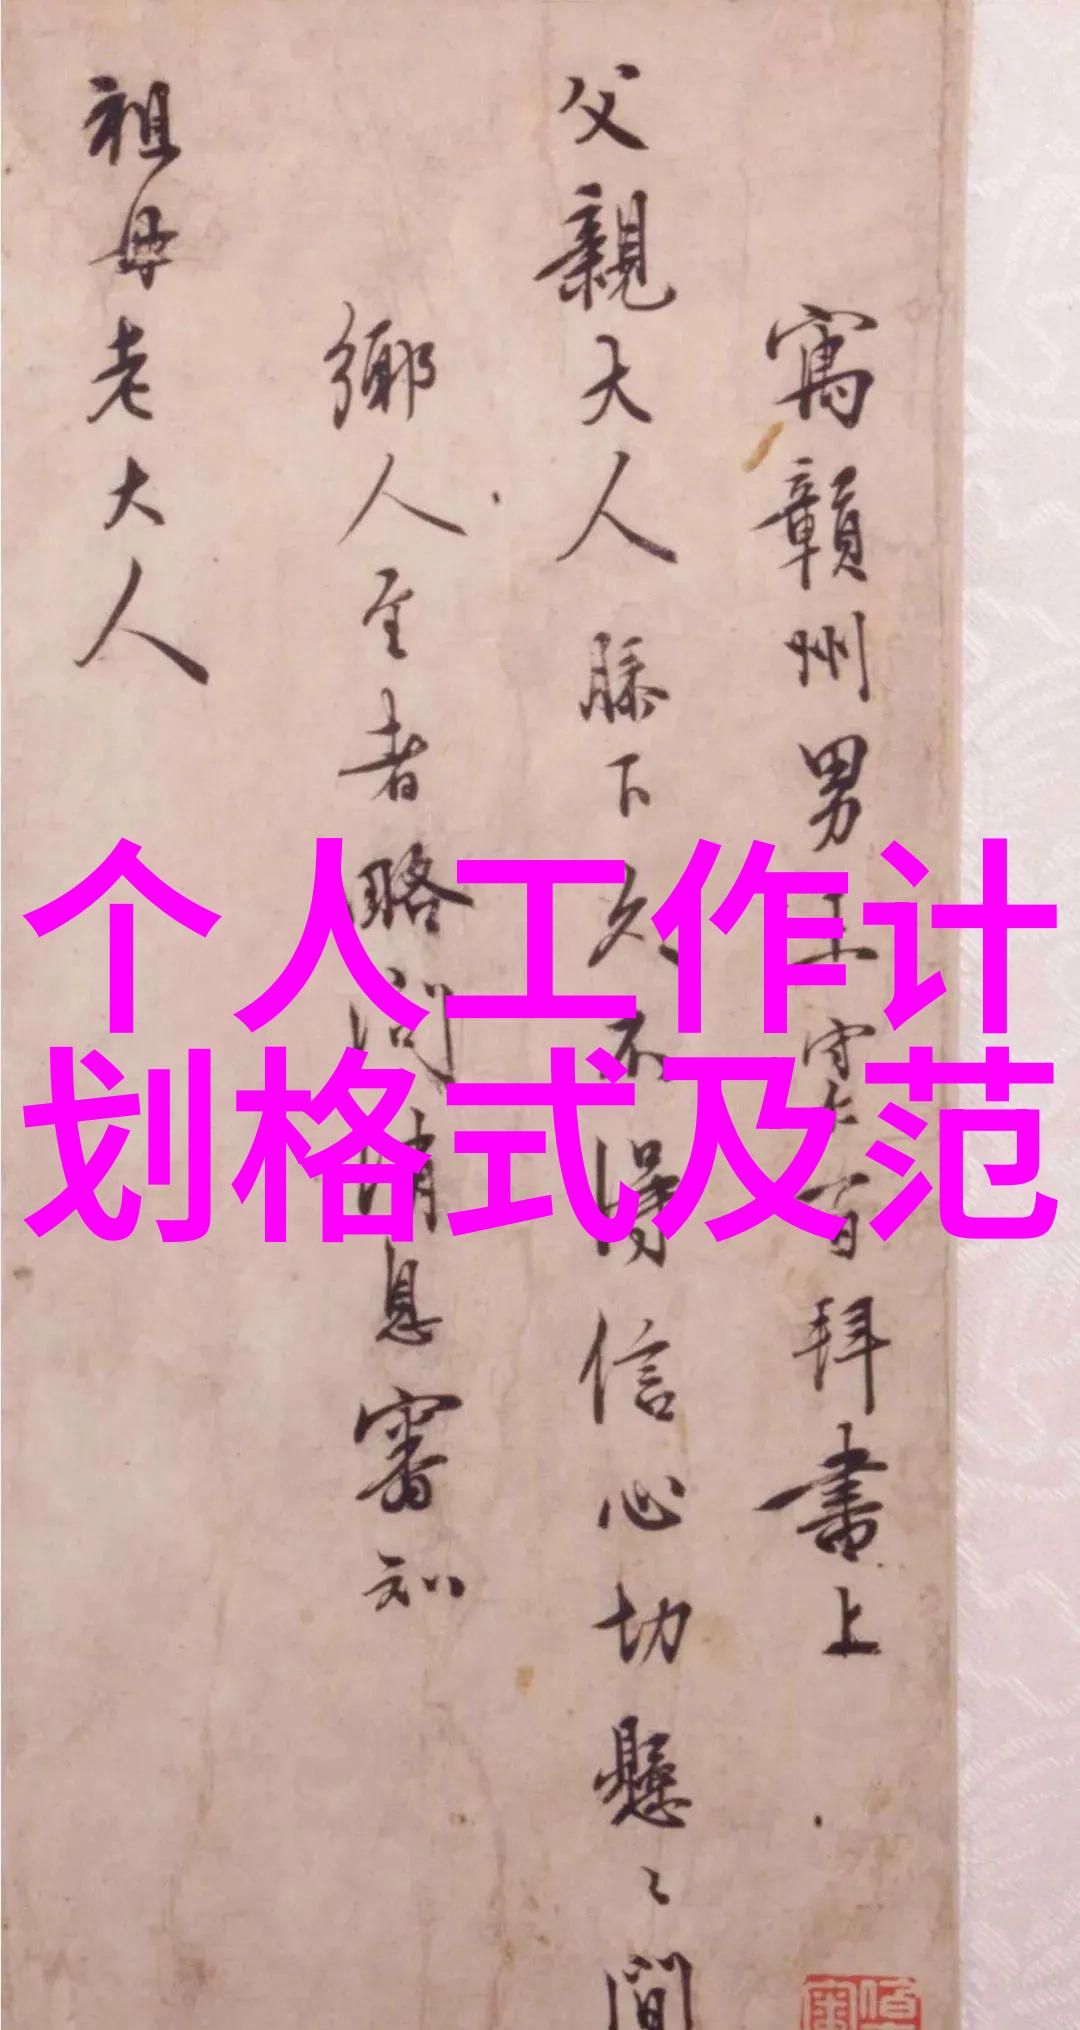 寓贛州男王守仁百拜書上
父親大人膝下久不得信心切懸〻間
鄉人至者略問消息審知
祖母老大人
个人工作计
划格式及范